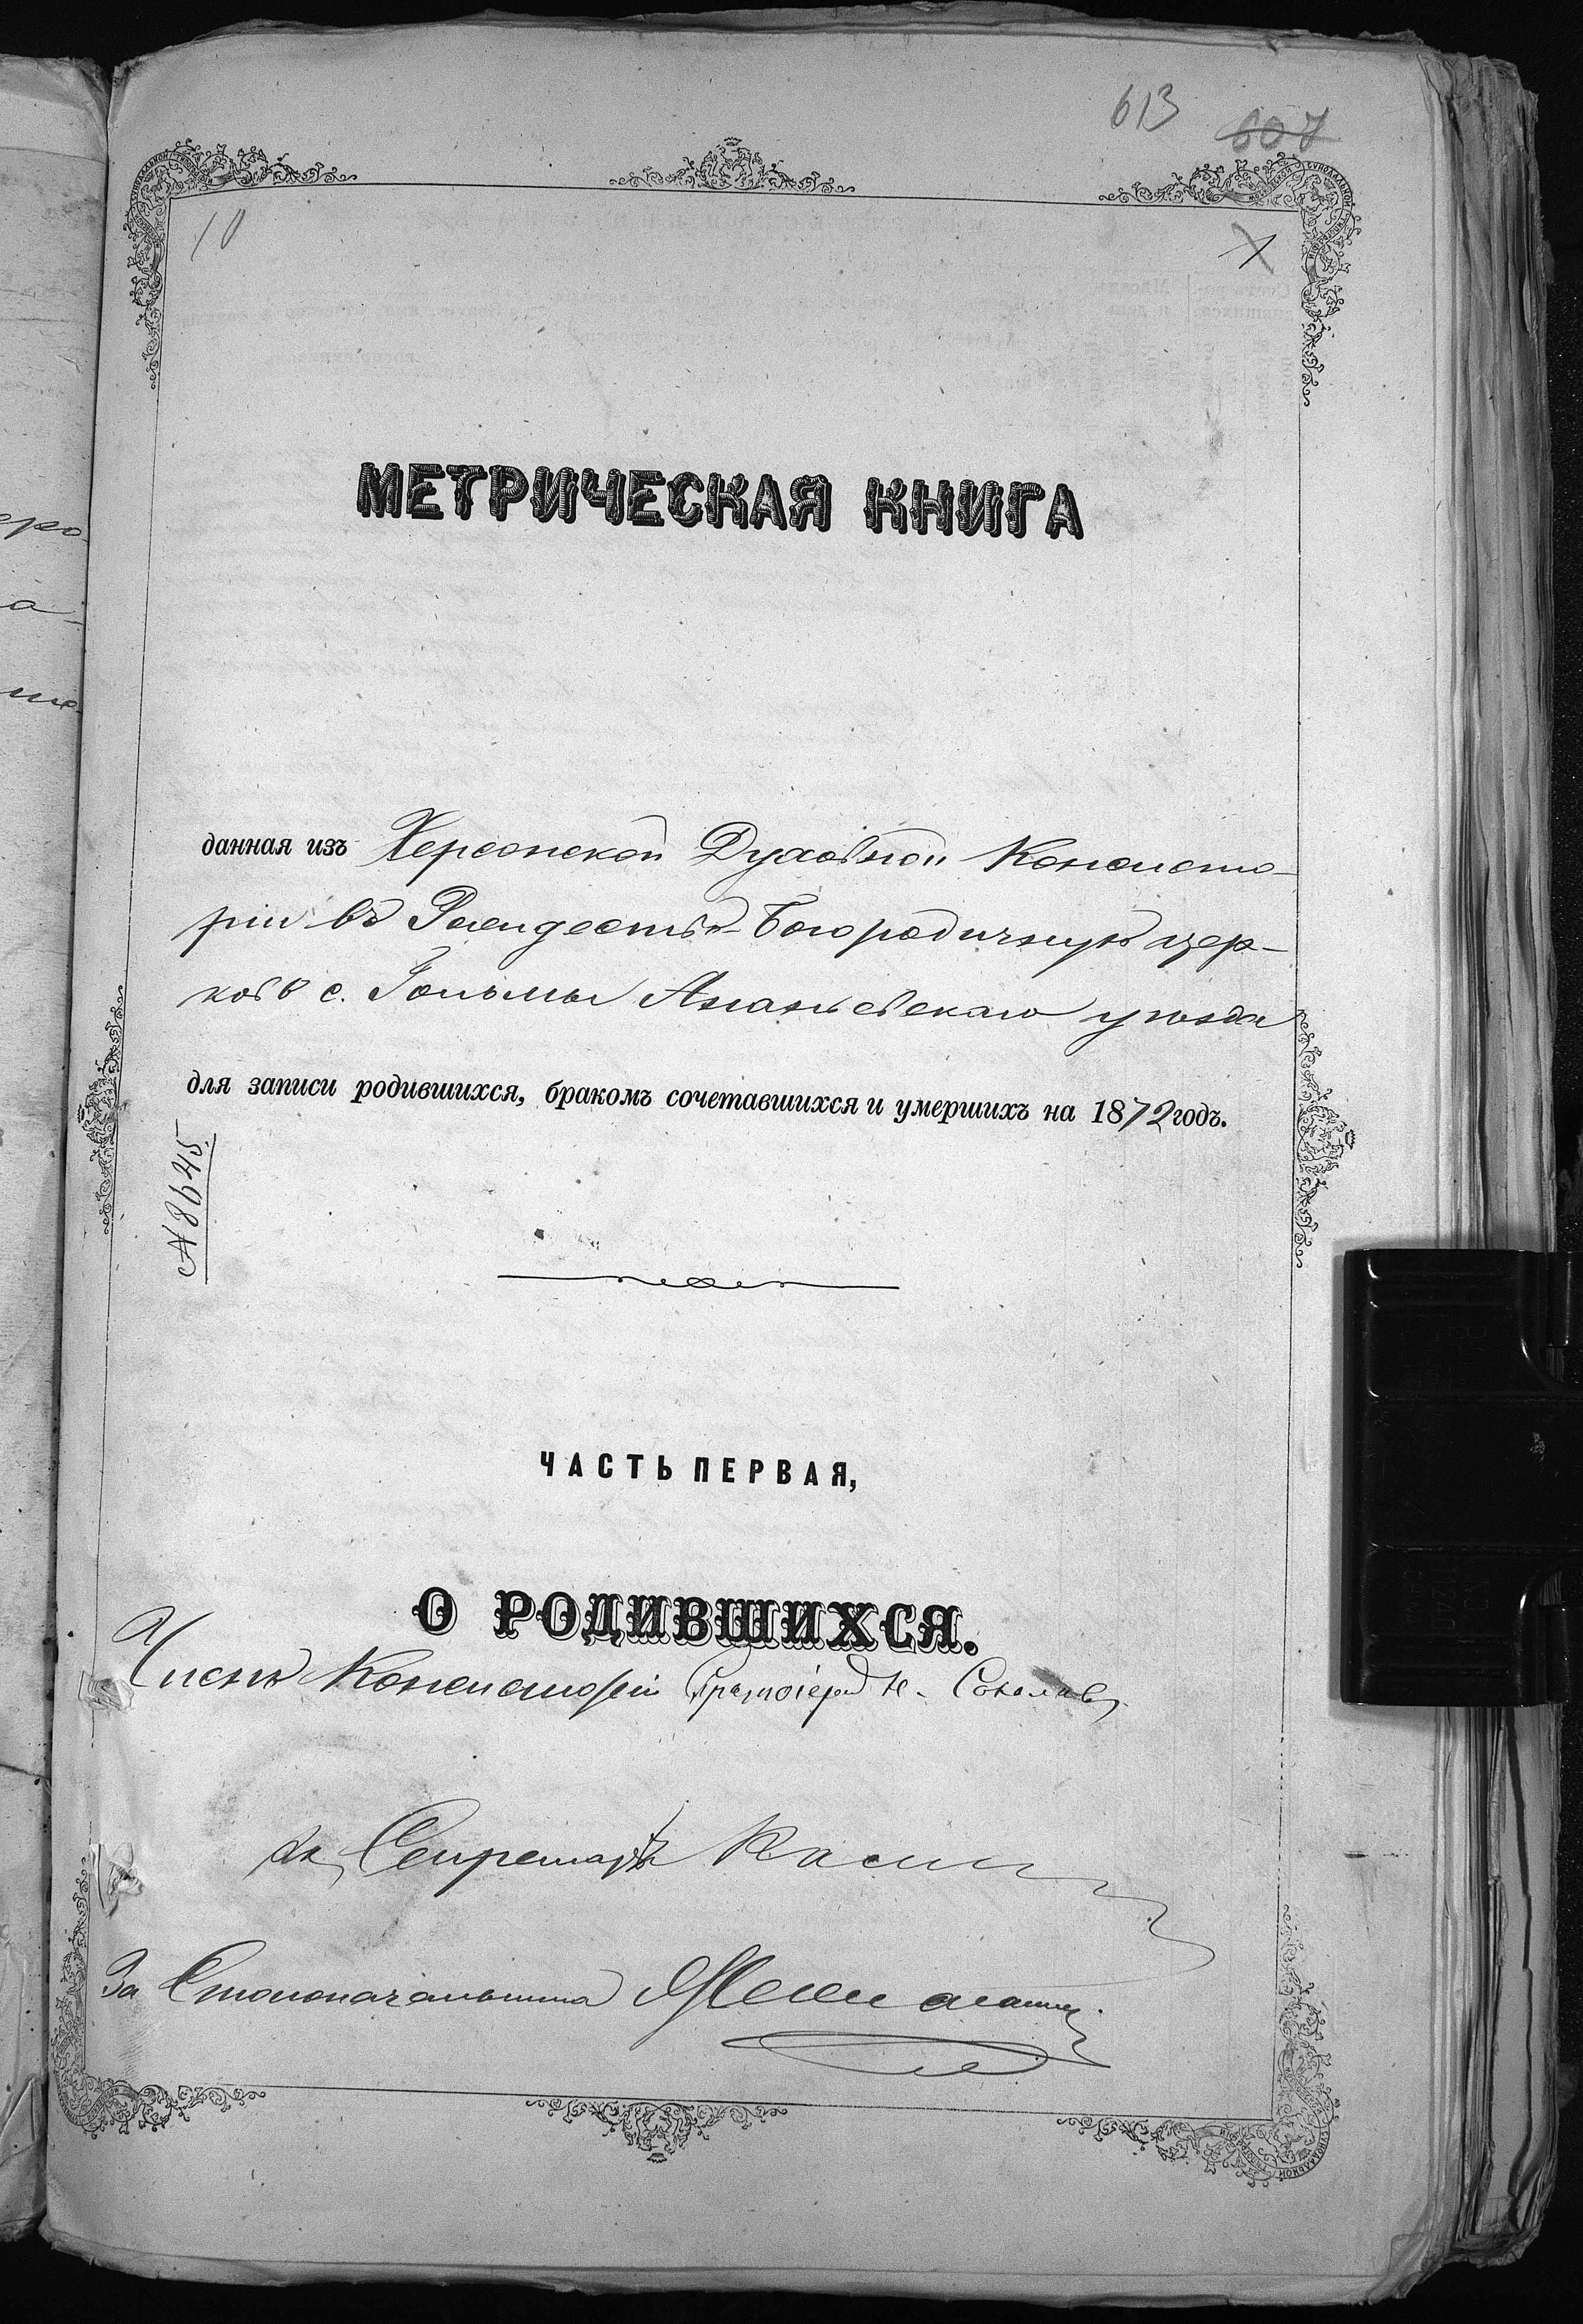 613 607
10
МЕТРИЧЕСКАЯ КНИГА
данная изъ Херсонской Духовной Консисто-
ріи въ Рождество-Богородичную цер-
ковь с. Гольмы Ананьевскаго уѣзда
для записи родившихся, бракомъ сочетавшихся и умершихъ на 1872 годъ.
№ 8645.
ЧАСТЬ ПЕРВАЯ,
О РОДИВШИХСЯ.
Членъ Консисторіи Протоіерей Н. Соколовъ
За Секретаря
За Столоначальника